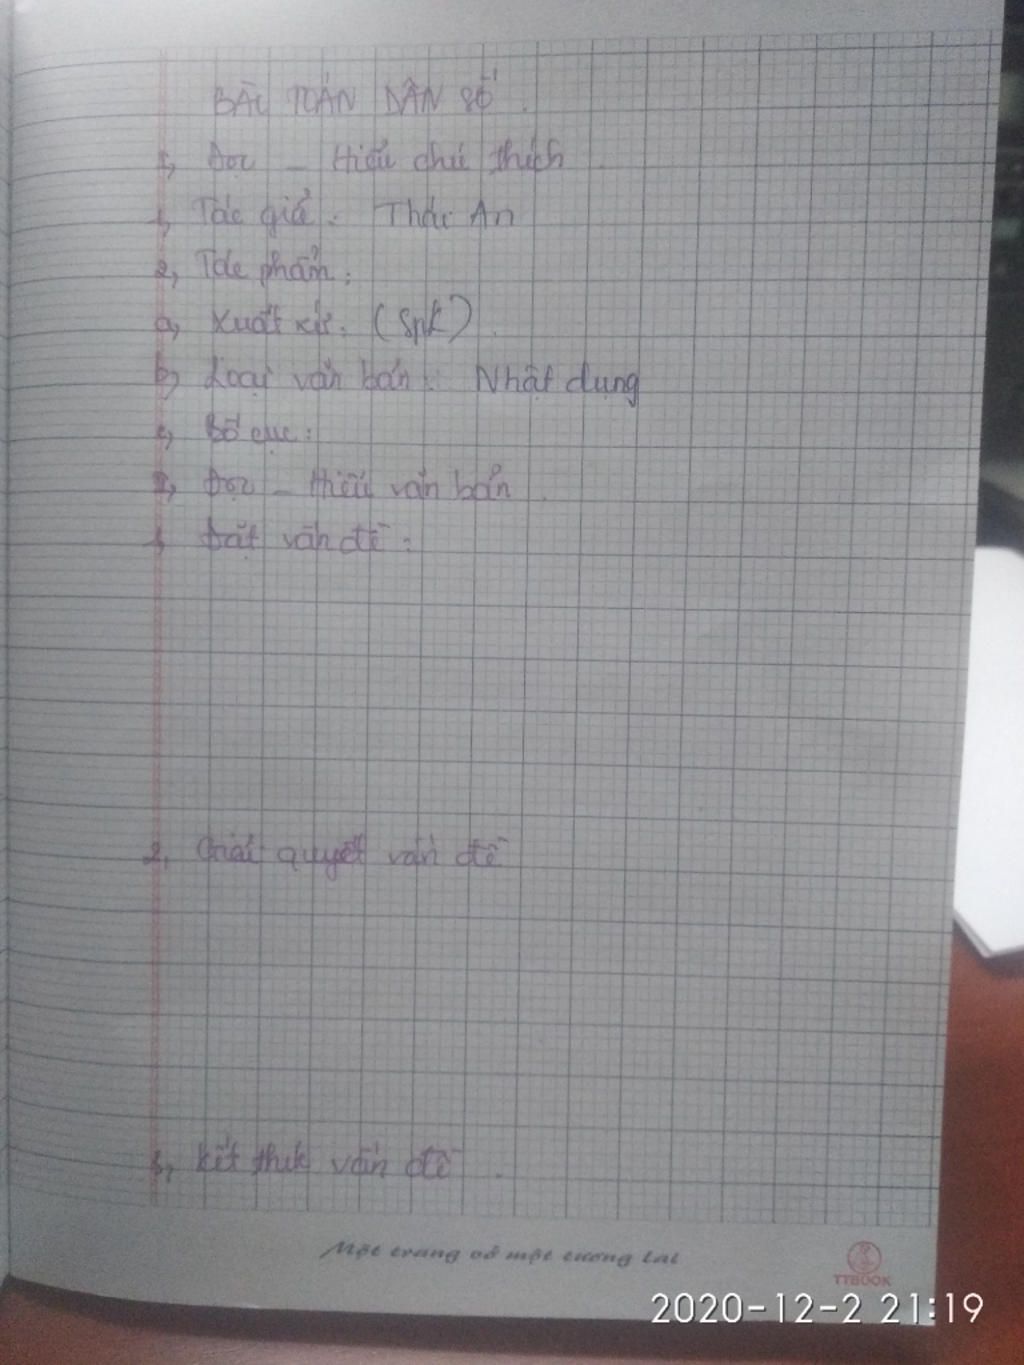 BÀI TOÁN DÂN SỐ.
I, Đọc - Hiểu chú thích.
1, Tác giả: Thái An
2, Tác phẩm:
a, Xuất xứ: (Sgk).
b, Loại văn bản: Nhật dụng
c, Bố cục:
II, Đọc - Hiểu văn bản.
1, Đặt vấn đề:
2, Giải quyết vấn đề
3, Kết thúc vấn đề.
Một trang vở một tương lai
TTBOOK
2020-12-2 21:19